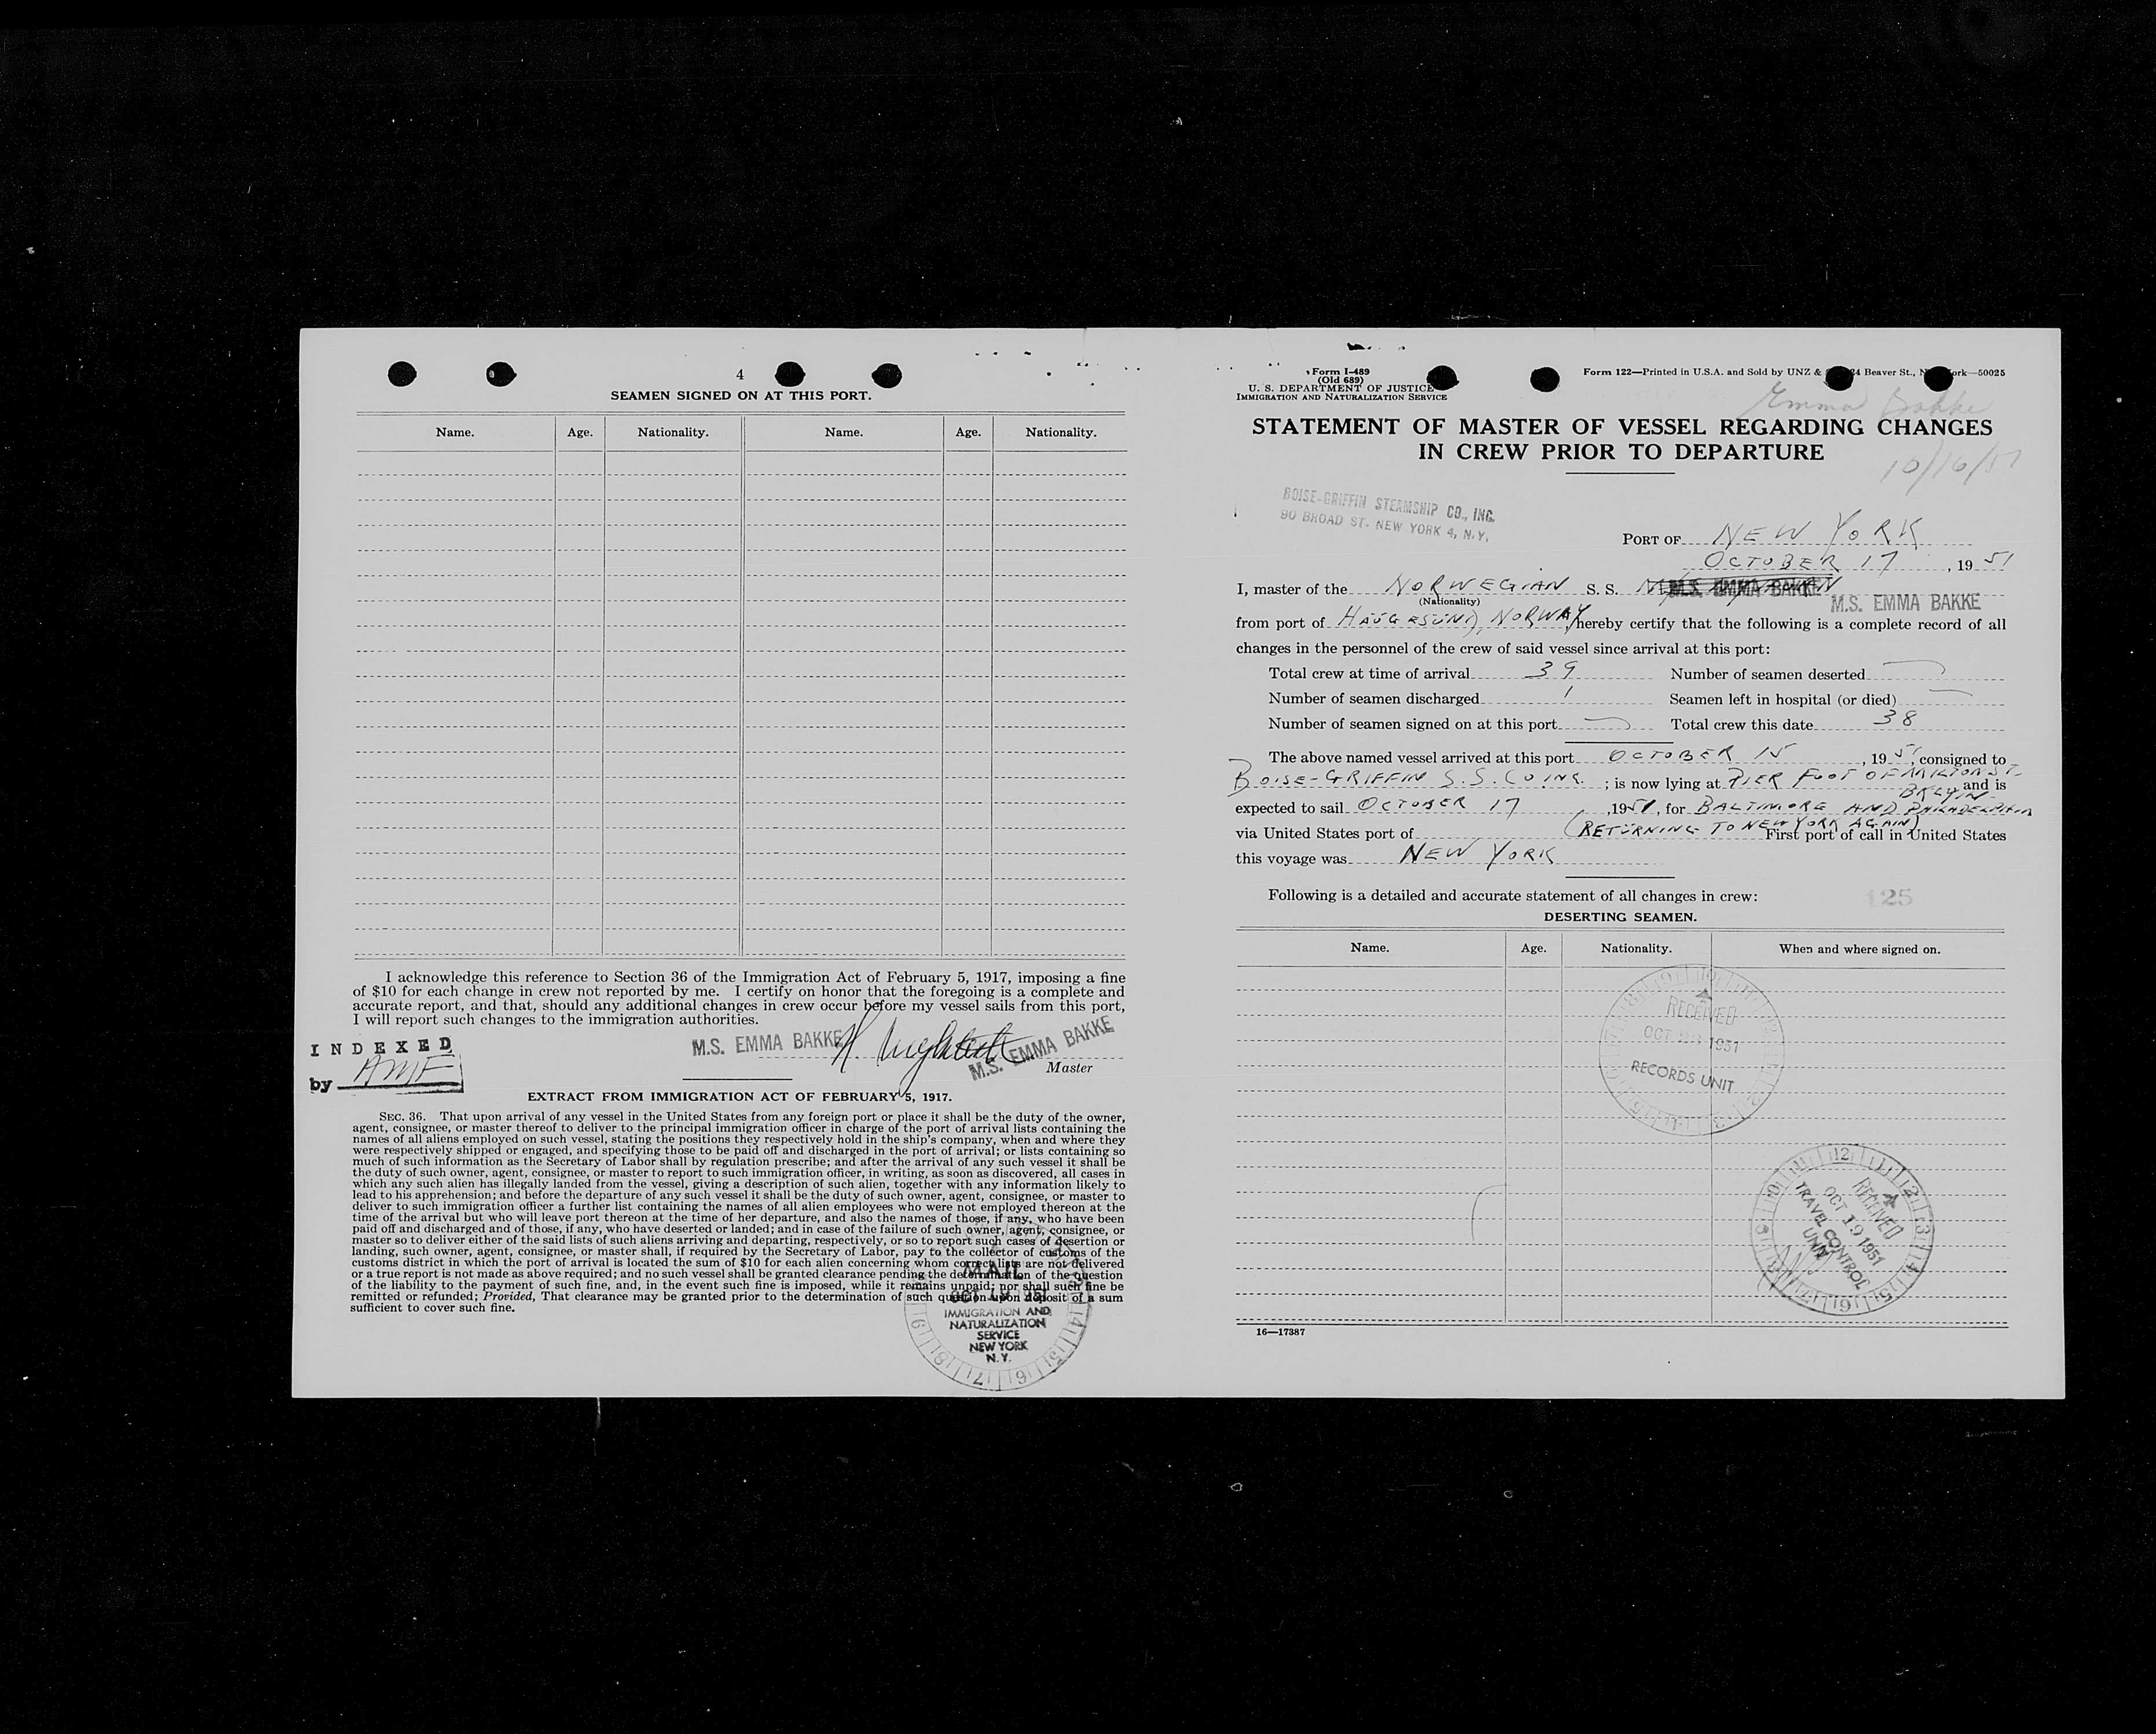 4
SEAMEN SIGNED ON AT THIS PORT.
Name. Age. Nationality. Name. Age. Nationality.
I acknowledge this reference to Section 36 of the Immigration Act of February 5, 1917, imposing a fine
of $10 for each change in crew not reported by me. I certify on honor that the foregoing is a complete and
accurate report, and that, should any additional changes in crew occur before my vessel sails from this port,
I will report such changes to the immigration authorities.
INDEXED
by AMF
M.S. EMMA BAKKE
M.S. EMMA BAKKE
Master
EXTRACT FROM IMMIGRATION ACT OF FEBRUARY 5, 1917.
SEC. 36. That upon arrival of any vessel in the United States from any foreign port or place it shall be the duty of the owner,
agent, consignee, or master thereof to deliver to the principal immigration officer in charge of the port of arrival lists containing the
names of all aliens employed on such vessel, stating the positions they respectively hold in the ship's company, when and where they
were respectively shipped or engaged, and specifying those to be paid off and discharged in the port of arrival; or lists containing so
much of such information as the Secretary of Labor shall by regulation prescribe; and after the arrival of any such vessel it shall be
the duty of such owner, agent, consignee, or master to report to such immigration officer, in writing, as soon as discovered, all cases in
which any such alien has illegally landed from the vessel, giving a description of such alien, together with any information likely to
lead to his apprehension; and before the departure of any such vessel it shall be the duty of such owner, agent, consignee, or master to
deliver to such immigration officer a further list containing the names of all alien employees who were not employed thereon at the
time of the arrival but who will leave port thereon at the time of her departure, and also the names of those, if any, who have been
paid off and discharged and of those, if any, who have deserted or landed; and in case of the failure of such owner, agent, consignee, or
master so to deliver either of the said lists of such aliens arriving and departing, respectively, or so to report such cases of desertion or
landing, such owner, agent, consignee, or master shall, if required by the Secretary of Labor, pay to the collector of customs of the
customs district in which the port of arrival is located the sum of $10 for each alien concerning whom correct lists are not delivered
or a true report is not made as above required; and no such vessel shall be granted clearance pending the determination of the question
of the liability to the payment of such fine, and, in the event such fine is imposed, while it remains unpaid; nor shall such fine be
remitted or refunded; Provided, That clearance may be granted prior to the determination of such question upon deposit of a sum
sufficient to cover such fine.
MAIL
IMMIGRATION AND
NATURALIZATION
SERVICE
NEW YORK
N.Y.
Form I-489
(Old 689)
U. S. DEPARTMENT OF JUSTICE
IMMIGRATION AND NATURALIZATION SERVICE
Form 122—Printed in U.S.A. and Sold by UNZ & 24 Beaver St., ork—50025
Emma Bakke
STATEMENT OF MASTER OF VESSEL REGARDING CHANGES
IN CREW PRIOR TO DEPARTURE
10/16/51
BOISE-GRIFFIN STEAMSHIP CO., INC.
90 BROAD ST. NEW YORK 4, N.Y.
PORT OF NEW YORK
OCTOBER 17, 1951
I, master of the NORWEGIAN S. S. M.S. EMMA BAKKE M.S. EMMA BAKKE
(Nationality)
from port of HAUGESUND, NORWAY hereby certify that the following is a complete record of all
changes in the personnel of the crew of said vessel since arrival at this port:
Total crew at time of arrival 39 Number of seamen deserted
Number of seamen discharged 1 Seamen left in hospital (or died)
Number of seamen signed on at this port Total crew this date 38
The above named vessel arrived at this port OCTOBER 15, 1951, consigned to
BOISE-GRIFFIN S.S. CO INC. ; is now lying at PIER FOOT OF MILTON ST. BKLYN and is
expected to sail OCTOBER 17, 1951, for BALTIMORE AND PHILADELPHIA
via United States port of (RETURNING TO NEW YORK AGAIN) First port of call in United States
this voyage was NEW YORK
Following is a detailed and accurate statement of all changes in crew:
125
DESERTING SEAMEN.
Name. Age. Nationality. When and where signed on.
RECEIVED
1951
RECORDS UNIT
RECEIVED
OCT 19 1951
TRAVEL CONTROL
UNIT
16—17387